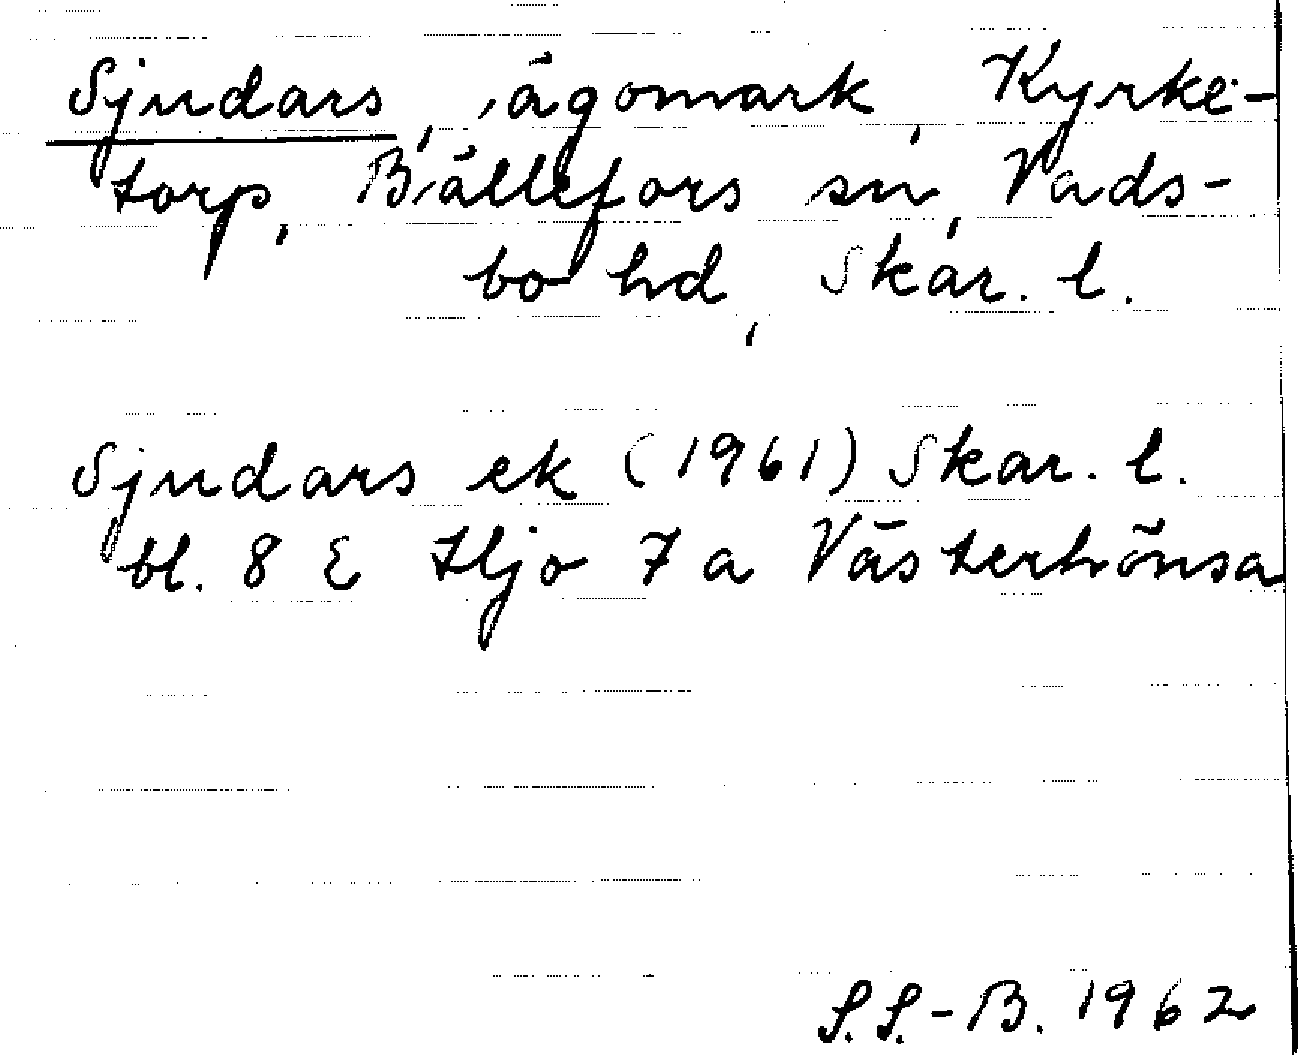 Sjudars, ägomark, Kyrke-
torp, Bällefors sn, Vads-
bo hd, Skar. l.
Sjudars ek (1961) Skar. l.
bl. 8 E Hjo 7 a Västerhönsa
S.S.-B. 1962